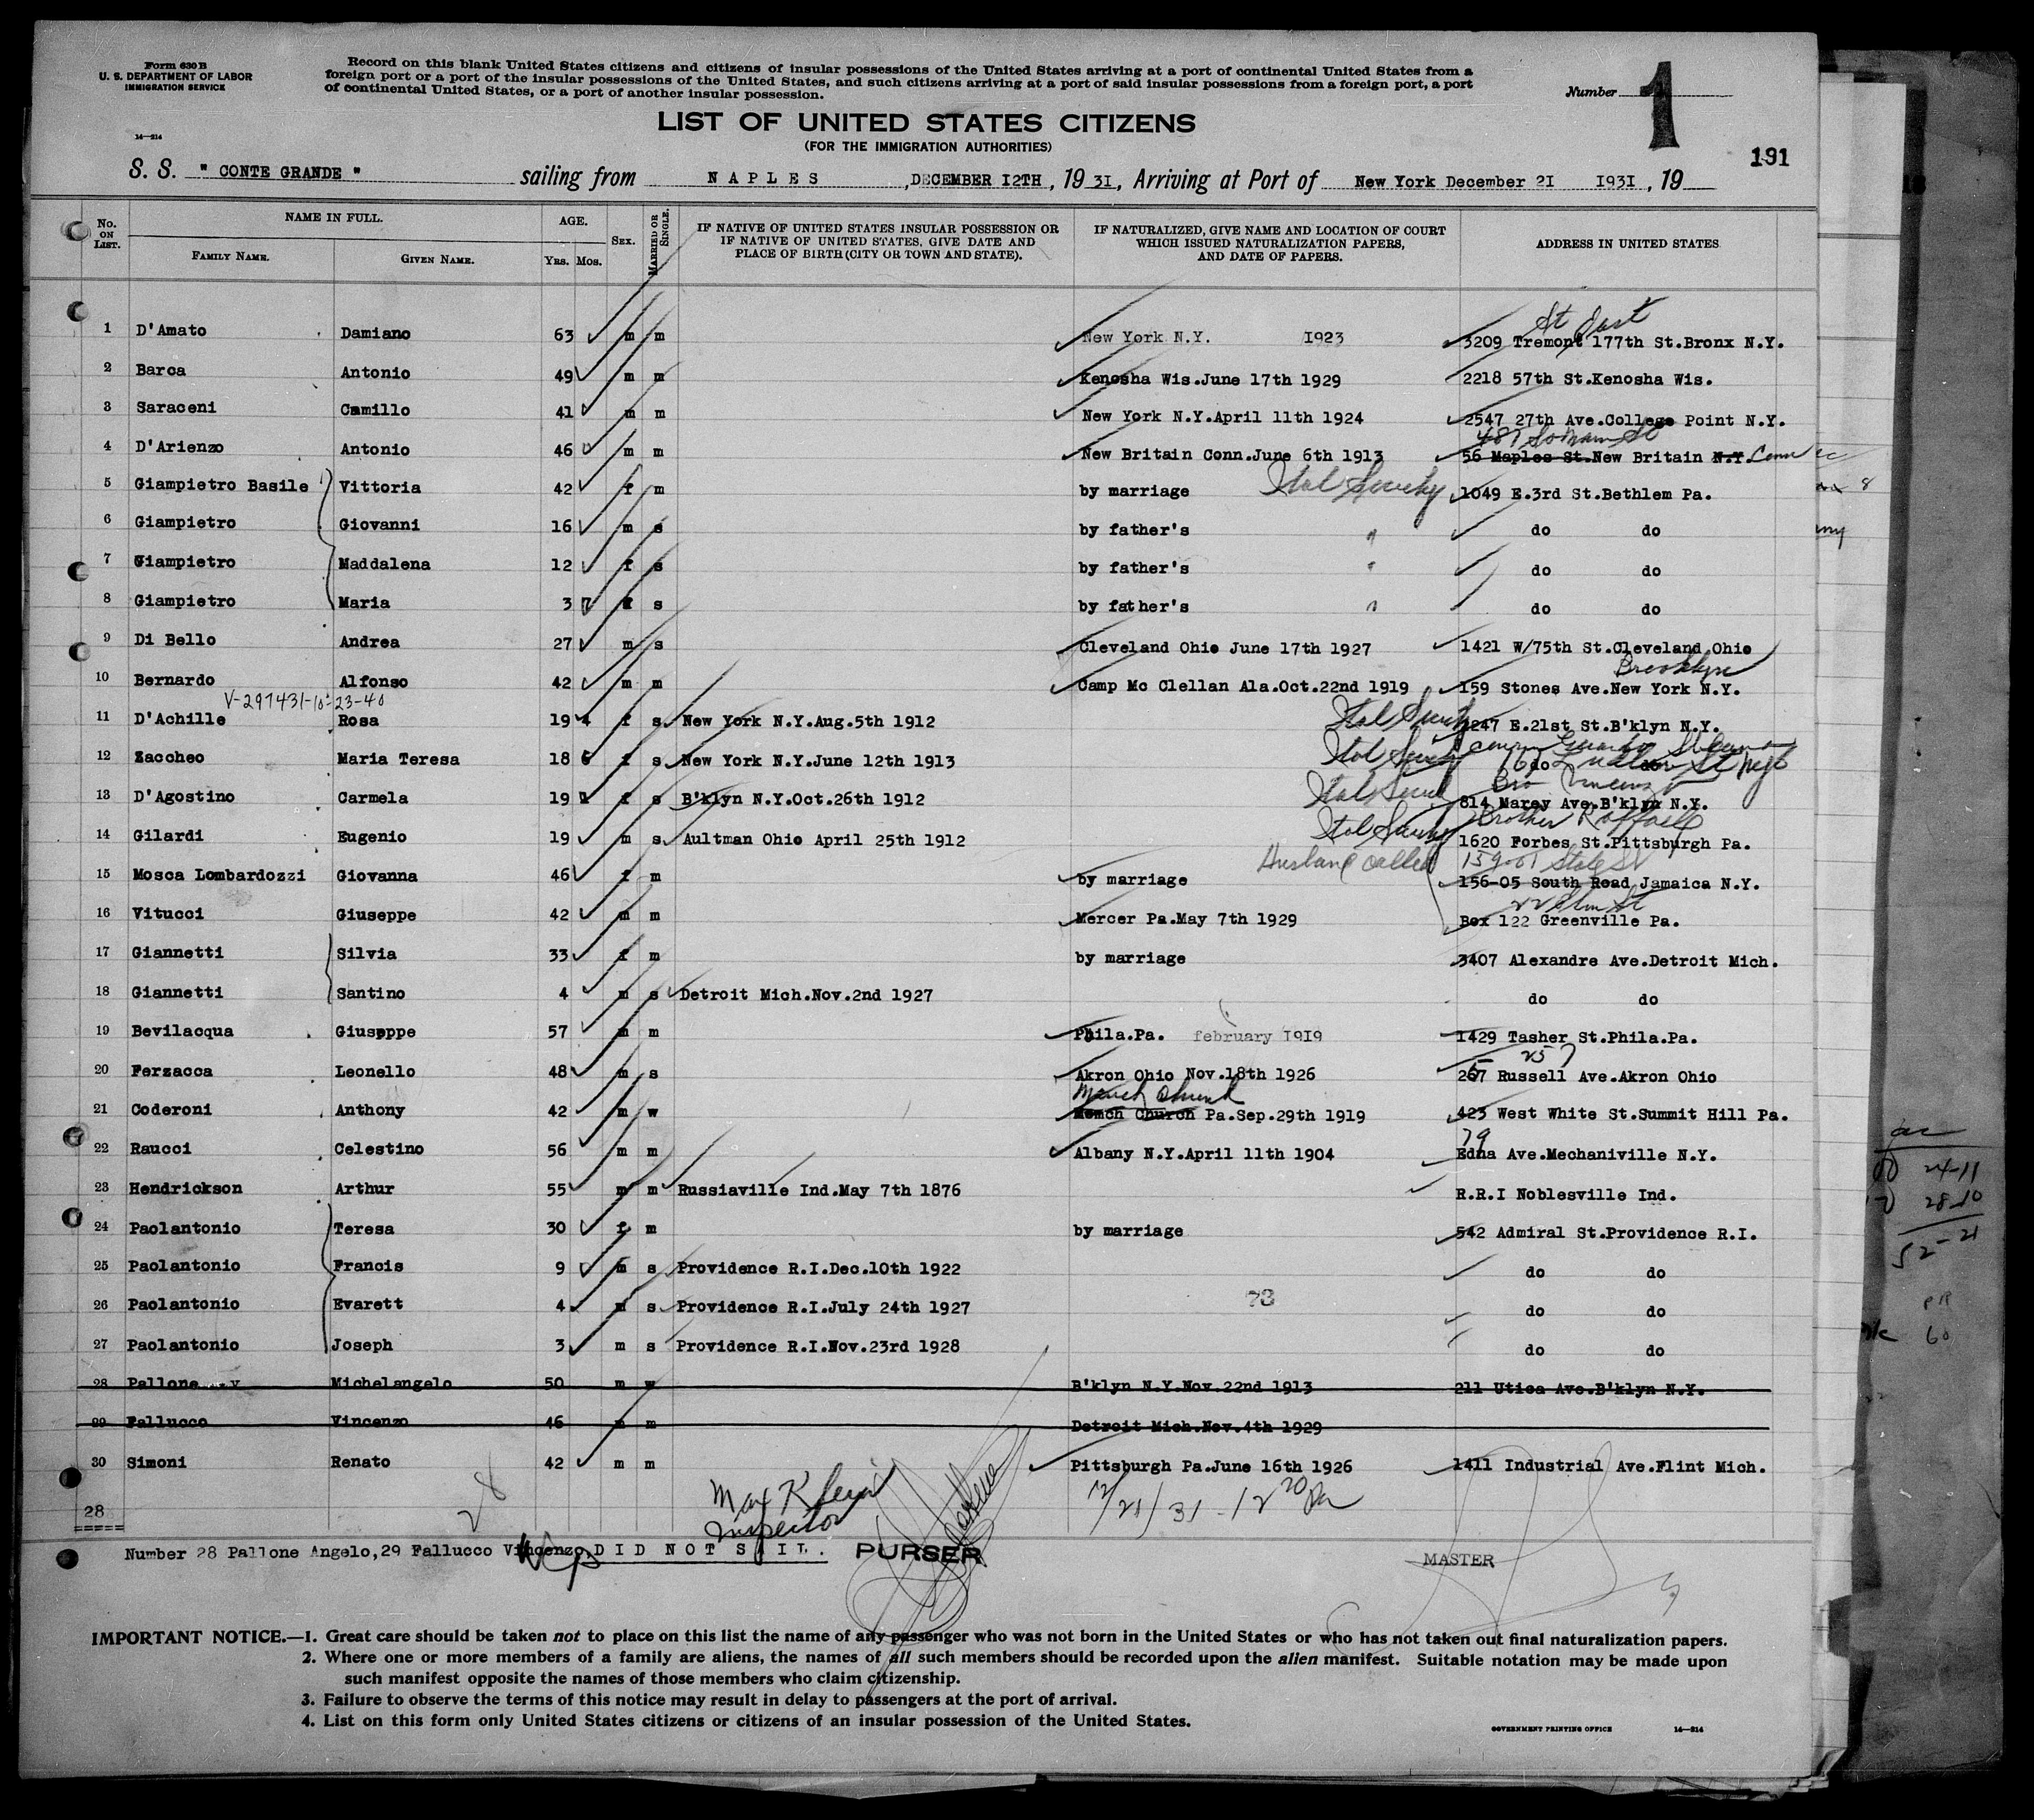 Form 630 B
U. S. DEPARTMENT OF LABOR
IMMIGRATION SERVICE
14—214
Record on this blank United States citizens and citizens of insular possessions of the United States arriving at a port of continental United States from a
foreign port or a port of the insular possessions of the United States, and such citizens arriving at a port of said insular possessions from a foreign port, a port
of continental United States, or a port of another insular possession.
Number 1
LIST OF UNITED STATES CITIZENS
(FOR THE IMMIGRATION AUTHORITIES)
191
S. S. " CONTE GRANDE " sailing from NAPLES, DECEMBER I2TH, 19 3I, Arriving at Port of New York December 2I I93I, 19
No. ON LIST. NAME IN FULL. FAMILY NAME. GIVEN NAME. AGE. YRS. MOS. SEX. MARRIED OR SINGLE. IF NATIVE OF UNITED STATES INSULAR POSSESSION OR IF NATIVE OF UNITED STATES, GIVE DATE AND PLACE OF BIRTH (CITY OR TOWN AND STATE). IF NATURALIZED, GIVE NAME AND LOCATION OF COURT WHICH ISSUED NATURALIZATION PAPERS, AND DATE OF PAPERS. ADDRESS IN UNITED STATES
St East
1 D'Amato Damiano 63 m m New York N.Y. I923 3209 Tremont 177th St.Bronx N.Y.
2 Barca Antonio 49 m m Kenosha Wis.June 17th 1929 2218 57th St.Kenosha Wis.
3 Saraceni Camillo 41 m m New York N.Y.April 11th 1924 2547 27th Ave.College Point N.Y.
487 So Main St
4 D'Arienzo Antonio 46 m m New Britain Conn.June 6th 1913 56 Maples St.New Britain N.Y. Conn
5 Giampietro Basile Vittoria 42 f m by marriage 1049 E.3rd St.Bethlem Pa.
6 Giampietro Giovanni 16 m s by father's " do do
7 Giampietro Maddalena 12 f s by father's " do do
8 Giampietro Maria 3 7 f s by father's " do do
9 Di Bello Andrea 27 m s Cleveland Ohio June 17th 1927 1421 W/75th St.Cleveland Ohio
Brooklyn
10 Bernardo Alfonso 42 m m Camp Mc Clellan Ala.Oct.22nd 1919 159 Stones Ave.New York N.Y.
V-297431-10-23-40
11 D'Achille Rosa 19 4 f s New York N.Y.Aug.5th 1912 2247 E.21st St.B'klyn N.Y.
12 Zaccheo Maria Teresa 18 6 f s New York N.Y.June 12th 1913 do do
13 D'Agostino Carmela 19 f s B'klyn N.Y.Oct.26th 1912 814 Marcy Ave.B'klyn N.Y.
Brother Raffaele
14 Gilardi Eugenio 19 m s Aultman Ohio April 25th 1912 1620 Forbes St.Pittsburgh Pa.
Husband called 159-01 State St
15 Mosca Lombardozzi Giovanna 46 f m by marriage 156-05 South Road Jamaica N.Y.
22 Elm St
16 Vitucci Giuseppe 42 m m Mercer Pa.May 7th 1929 Box 122 Greenville Pa.
17 Giannetti Silvia 33 f m by marriage 3407 Alexandre Ave.Detroit Mich.
18 Giannetti Santino 4 m s Detroit Mich.Nov.2nd 1927 do do
19 Bevilacqua Giuseppe 57 m m Phila.Pa. february I9I9 1429 Tasher St.Phila.Pa.
257
20 Ferzacca Leonello 48 m s Akron Ohio Nov.18th 1926 267 Russell Ave.Akron Ohio
Mauch Chunk
21 Coderoni Anthony 42 m w Church Pa.Sep.29th 1919 423 West White St.Summit Hill Pa.
79
22 Raucci Celestino 56 m m Albany N.Y.April 11th 1904 Edna Ave.Mechaniville N.Y.
23 Hendrickson Arthur 55 m m Russiaville Ind.May 7th 1876 R.R.I Noblesville Ind.
24 Paolantonio Teresa 30 f m by marriage 542 Admiral St.Providence R.I.
25 Paolantonio Francis 9 m s Providence R.I.Dec.10th 1922 do do
26 Paolantonio Evarett 4 m s Providence R.I.July 24th 1927 73 do do
27 Paolantonio Joseph 3 m s Providence R.I.Nov.23rd 1928 do do
28 Pallone Michelangelo 50 m w B'klyn N.Y.Nov.22nd 1913 211 Utica Ave.B'klyn N.Y.
29 Fallucco Vincenzo 46 m m Detroit Mich.Nov.4th 1929
30 Simoni Renato 42 m m Pittsburgh Pa.June 16th 1926 1411 Industrial Ave.Flint Mich.
28 28 Inspector 12/21/31 - 12 20 PM
Number 28 Pallone Angelo,29 Fallucco Vincenzo,DID NOT SAIL. PURSER MASTER
24-11
28-10
52-21
60
IMPORTANT NOTICE.—1. Great care should be taken not to place on this list the name of any passenger who was not born in the United States or who has not taken out final naturalization papers.
2. Where one or more members of a family are aliens, the names of all such members should be recorded upon the alien manifest. Suitable notation may be made upon
such manifest opposite the names of those members who claim citizenship.
3. Failure to observe the terms of this notice may result in delay to passengers at the port of arrival.
4. List on this form only United States citizens or citizens of an insular possession of the United States.
GOVERNMENT PRINTING OFFICE 14—214